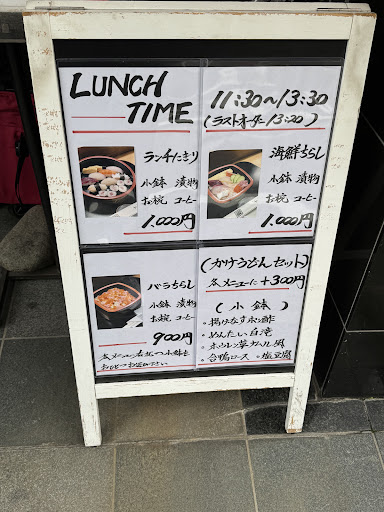 LUNCH
TIME
ランチにぎり
小鉢 漬物
お椀 コーヒー
1.000円
11:30~13:30
(ラストオーダー13:20)
海鮮ちらし
小鉢 漬物
お椀 コーヒー
1.000円
バラちらし
小鉢 漬物
お椀 コーヒー
900円
各メニュー右記の小鉢を
おひとつお選び下さい
(かけうどんセット)
各メニューに+300円
(小鉢)
・揚げなすポン酢
・めんたい白滝
・ホウレン草ナムル風
・合鴨ロース ・塩豆腐